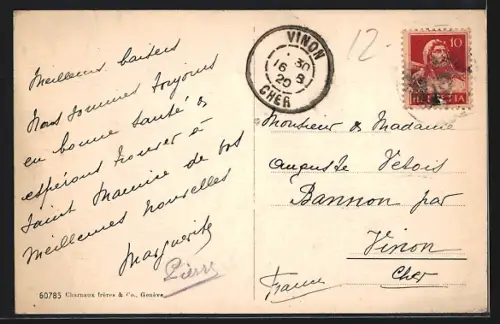 Meilleurs baisers
Nous sommes toujours
en bonne santé &
espérons trouver à
Saint Maurice de vos
meilleures nouvelles
Marguerite
Pierre
60785 Charnaux frères & Co., Genève
VINON
16 8
20
CHER
12-
10
HELVETIA
Monsieur & Madame
Auguste
Bannon par
Vinon
Cher
France